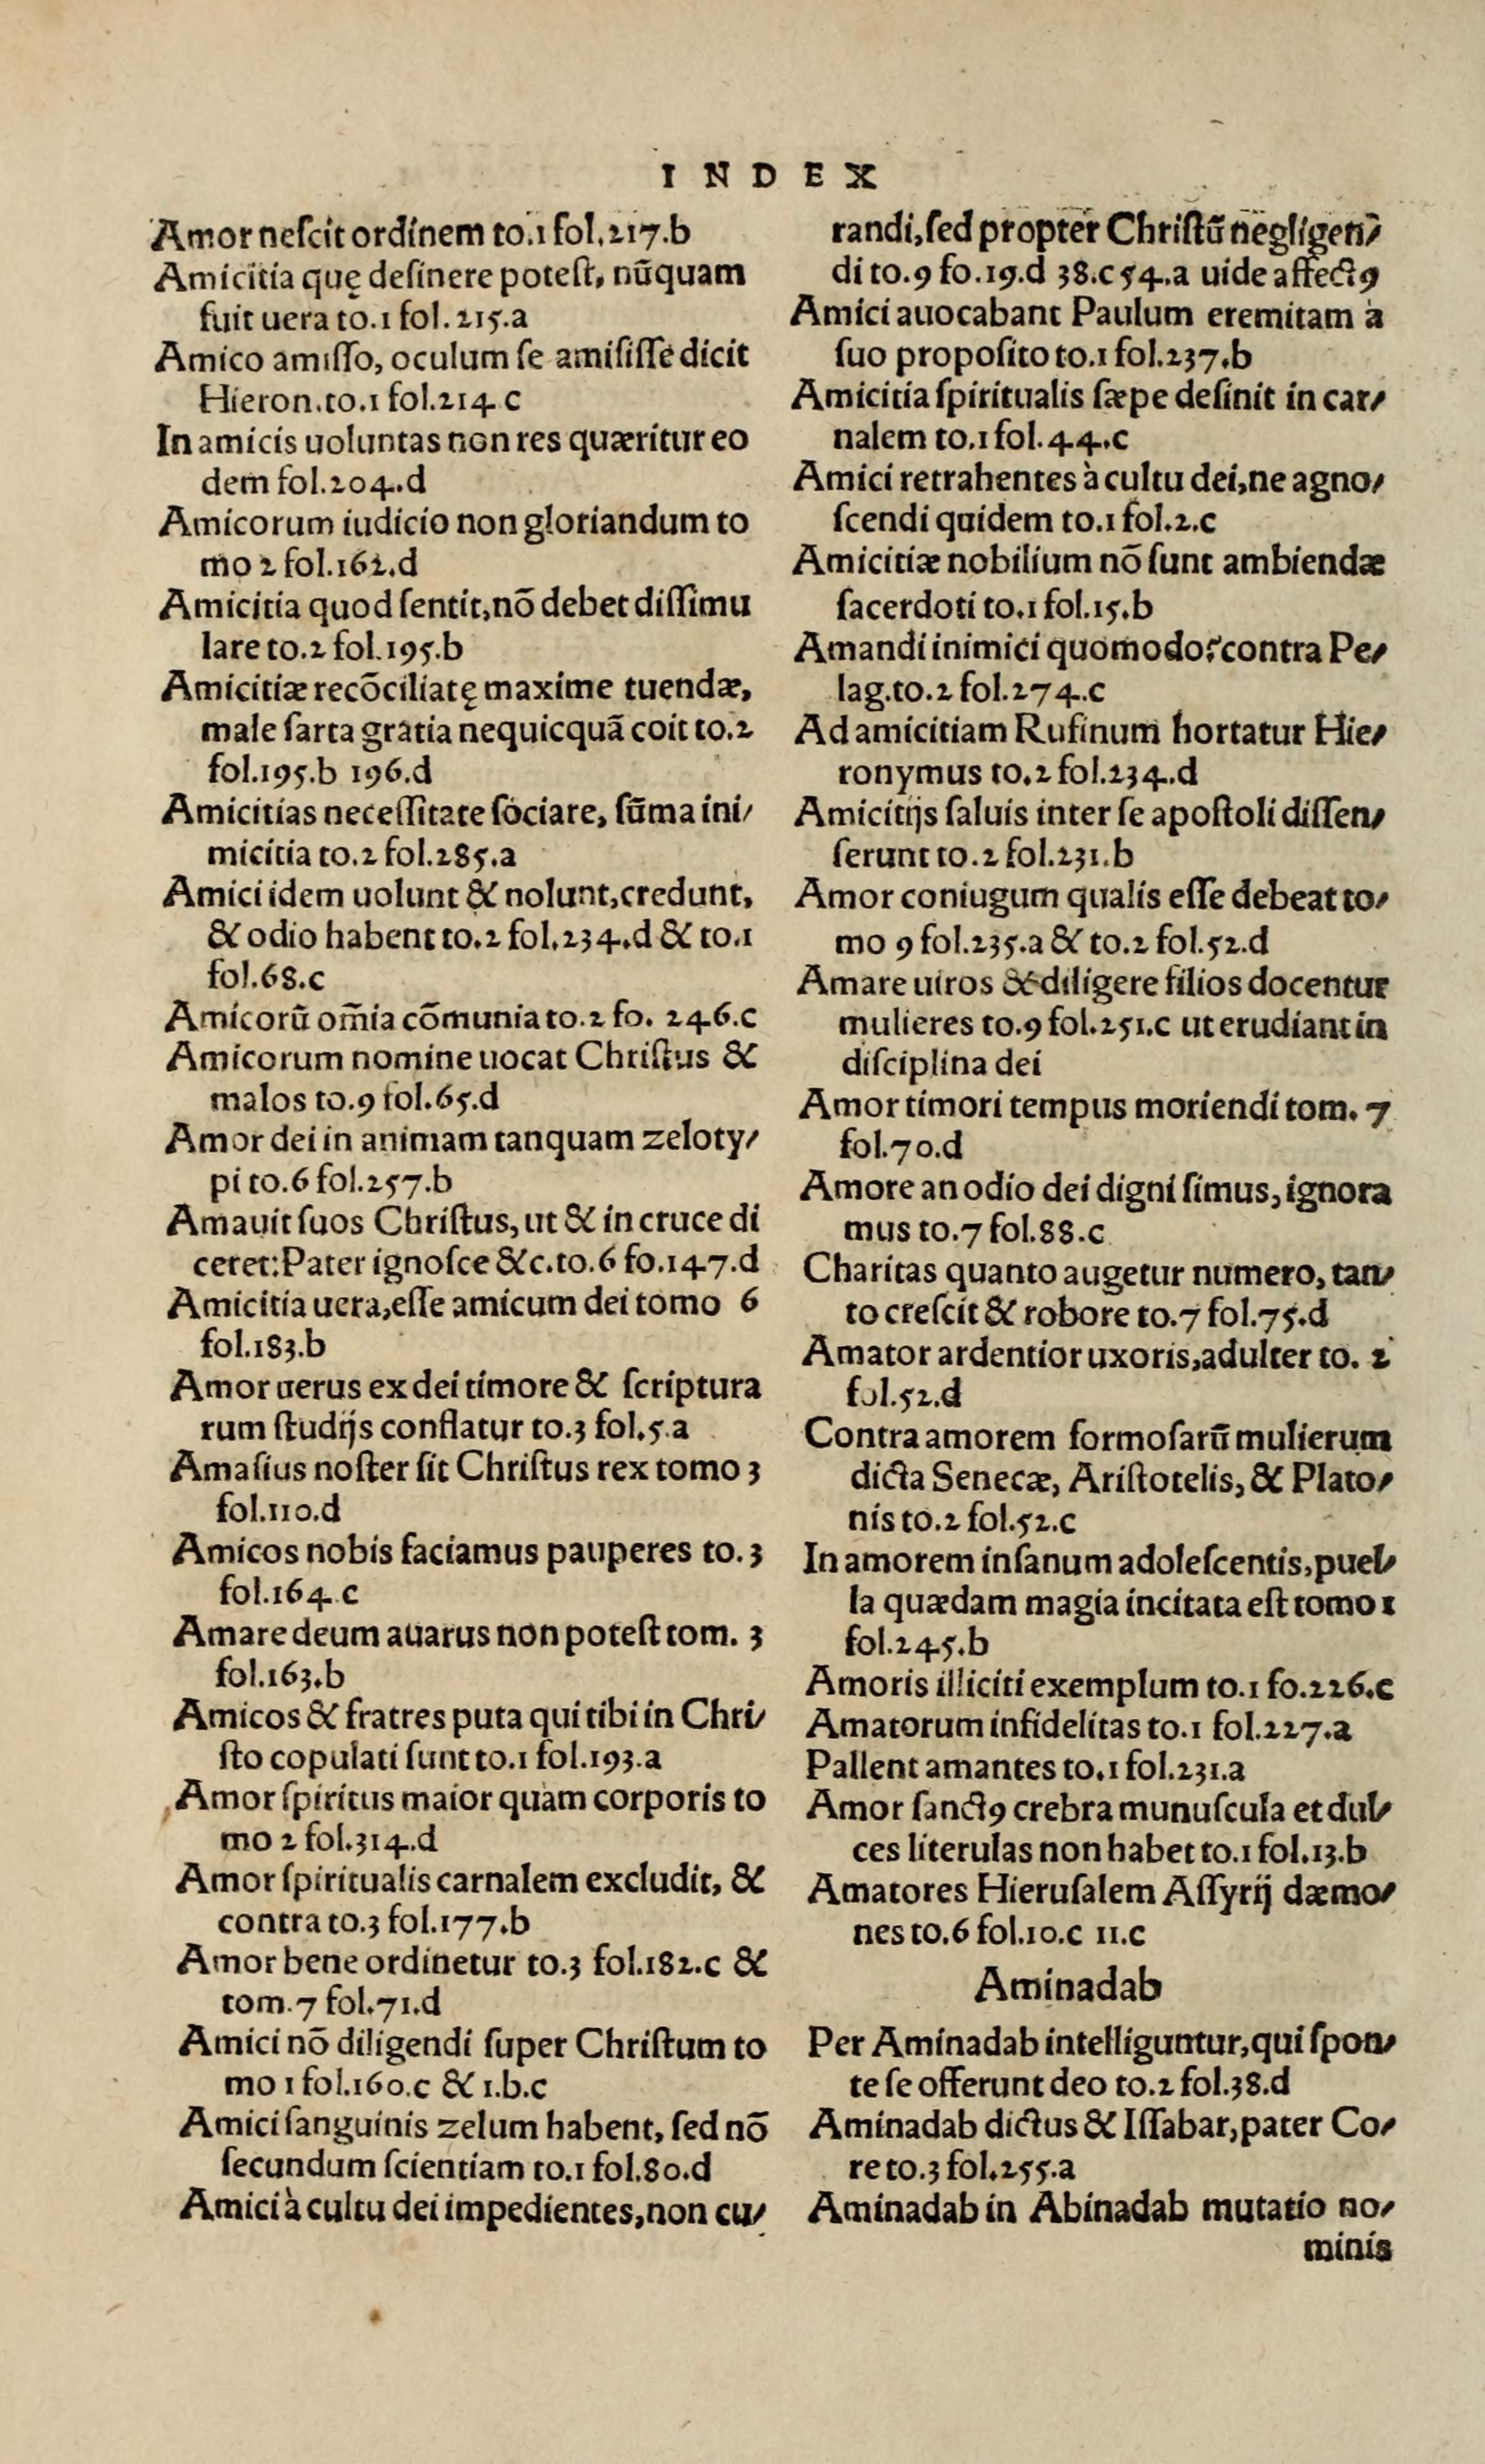 INDEX
Amor neſcit ordinem to.1 fol.217.b
Amicitia quę deſinere poteſt, nūquam
fuit uera to.1 fol.215.a
Amico amiſſo, oculum ſe amiſiſſe dicit
Hieron.to.1 fol.214.c
In amicis uoluntas non res quæritur eo
dem fol.204.d
Amicorum iudicio non gloriandum to
mo 2 fol.162.d
Amicitia quod ſentit,nō debet diſſimu
lare to.2 fol.195.b
Amicitiæ recōciliatę maxime tuendæ,
male ſarta gratia nequicquā coit to.2
fol.195.b 196.d
Amicitias neceſſitate ſociare, ſūma ini/
micitia to.2 fol.285.a
Amici idem uolunt & nolunt,credunt,
& odio habent to.2 fol.234.d & to.1
fol.68.c
Amicorū om̄ia cōmunia to.2 fo. 246.c
Amicorum nomine uocat Chriſtus &
malos to.9 fol.65.d
Amor dei in animam tanquam zeloty/
pi to.6 fol.257.b
Amauit ſuos Chriſtus, ut & in cruce di
ceret:Pater ignoſce &c.to.6 fo.147.d
Amicitia uera,eſſe amicum dei tomo 6
fol.183.b
Amor uerus ex dei timore & ſcriptura
rum ſtudijs conflatur to.3 fol.5.a
Amaſius noſter ſit Chriſtus rex tomo 3
fol.110.d
Amicos nobis faciamus pauperes to.3
fol.164.c
Amare deum auarus non poteſt tom. 3
fol.163.b
Amicos & fratres puta qui tibi in Chri/
ſto copulati ſunt to.1 fol.193.a
Amor ſpiritus maior quàm corporis to
mo 2 fol.314.d
Amor ſpiritualis carnalem excludit, &
contra to.3 fol.177.b
Amor bene ordinetur to.3 fol.182.c &
tom.7 fol.71.d
Amici nō diligendi ſuper Chriſtum to
mo 1 fol.160.c & 1.b.c
Amici ſanguinis zelum habent, ſed nō
ſecundum ſcientiam to.1 fol.80.d
Amici à cultu dei impedientes,non cu/
randi,ſed propter Chriſtū negligen/
di to.9 fo.19.d 38.c 54.a uide affectꝰ
Amici auocabant Paulum eremitam à
ſuo propoſito to.1 fol.237.b
Amicitia ſpiritualis ſæpe deſinit in car/
nalem to.1 fol.44.c
Amici retrahentes à cultu dei,ne agno/
ſcendi quidem to.1 fol.2.c
Amicitiæ nobilium nō ſunt ambiendæ
ſacerdoti to.1 fol.15.b
Amandi inimici quomodo?contra Pe/
lag.to.2 fol.274.c
Ad amicitiam Rufinum hortatur Hie/
ronymus to.2 fol.234.d
Amicitijs ſaluis inter ſe apoſtoli diſſen/
ſerunt to.2 fol.231.b
Amor coniugum qualis eſſe debeat to/
mo 9 fol.235.a & to.2 fol.52.d
Amare uiros & diligere filios docentur
mulieres to.9 fol.251.c ut erudiant in
diſciplina dei
Amor timori tempus moriendi tom. 7
fol.70.d
Amore an odio dei digni ſimus, ignora
mus to.7 fol.88.c
Charitas quanto augetur numero, tan/
to creſcit & robore to.7 fol.75.d
Amator ardentior uxoris,adulter to. 2
fol.52.d
Contra amorem formoſarū mulierum
dicta Senecæ, Ariſtotelis, & Plato/
nis to.2 fol.52.c
In amorem inſanum adoleſcentis,puel/
la quædam magia incitata eſt tomo 1
fol.245.b
Amoris illiciti exemplum to.1 fo.226.c
Amatorum infidelitas to.1 fol.227.a
Pallent amantes to.1 fol.231.a
Amor ſanctꝰ crebra munuſcula et dul/
ces literulas non habet to.1 fol.13.b
Amatores Hieruſalem Aſſyrij dæmo/
nes to.6 fol.10.c 11.c
Aminadab
Per Aminadab intelliguntur,qui ſpon/
te ſe offerunt deo to.2 fol.38.d
Aminadab dictus & Iſſabar,pater Co/
re to.3 fol.255.a
Aminadab in Abinadab mutatio no/
minis